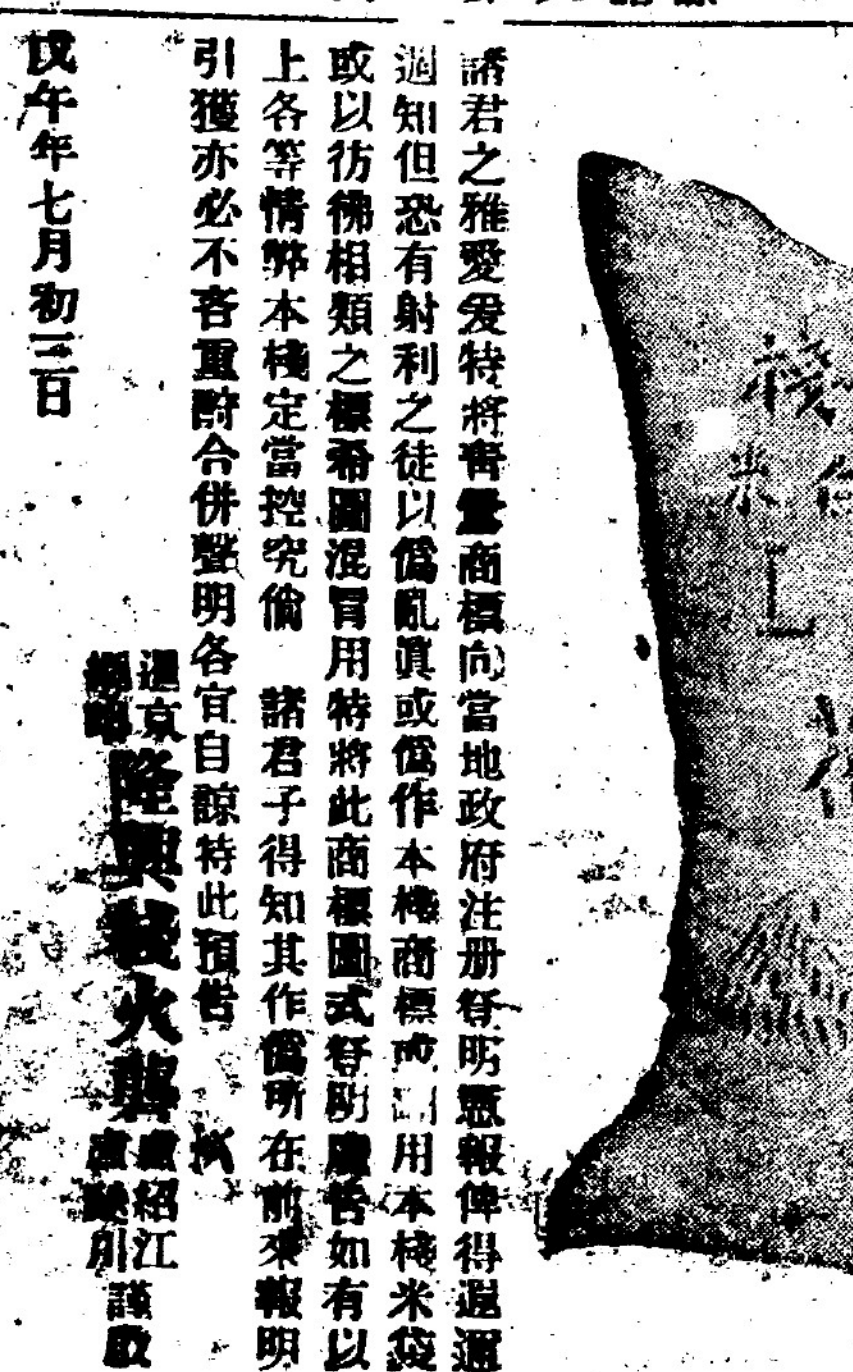 棧
米
諸君之雅愛爰特將商標向當地政府注册登明憲報俾得遐邇
週知但恐有射利之徒以僞亂眞或僞作本棧商標或用本棧米袋
或以彷彿相類之標希圖混冒用特將此商標圖式登明廣告如有以
上各等情弊本棧定當控究倘　諸君子得知其作僞所在前來報明
引獲亦必不吝重酧合併聲明各宜自諒特此預告
暹京
隆興棧火礱
盧紹江
謹啟
戊午年七月初三日